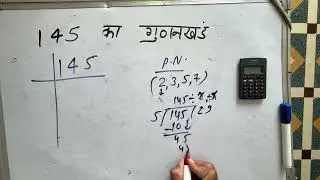 145 का गुणनखंड
145
P.N.
(2,3,5,7)
5)145(29
10↓
45
4